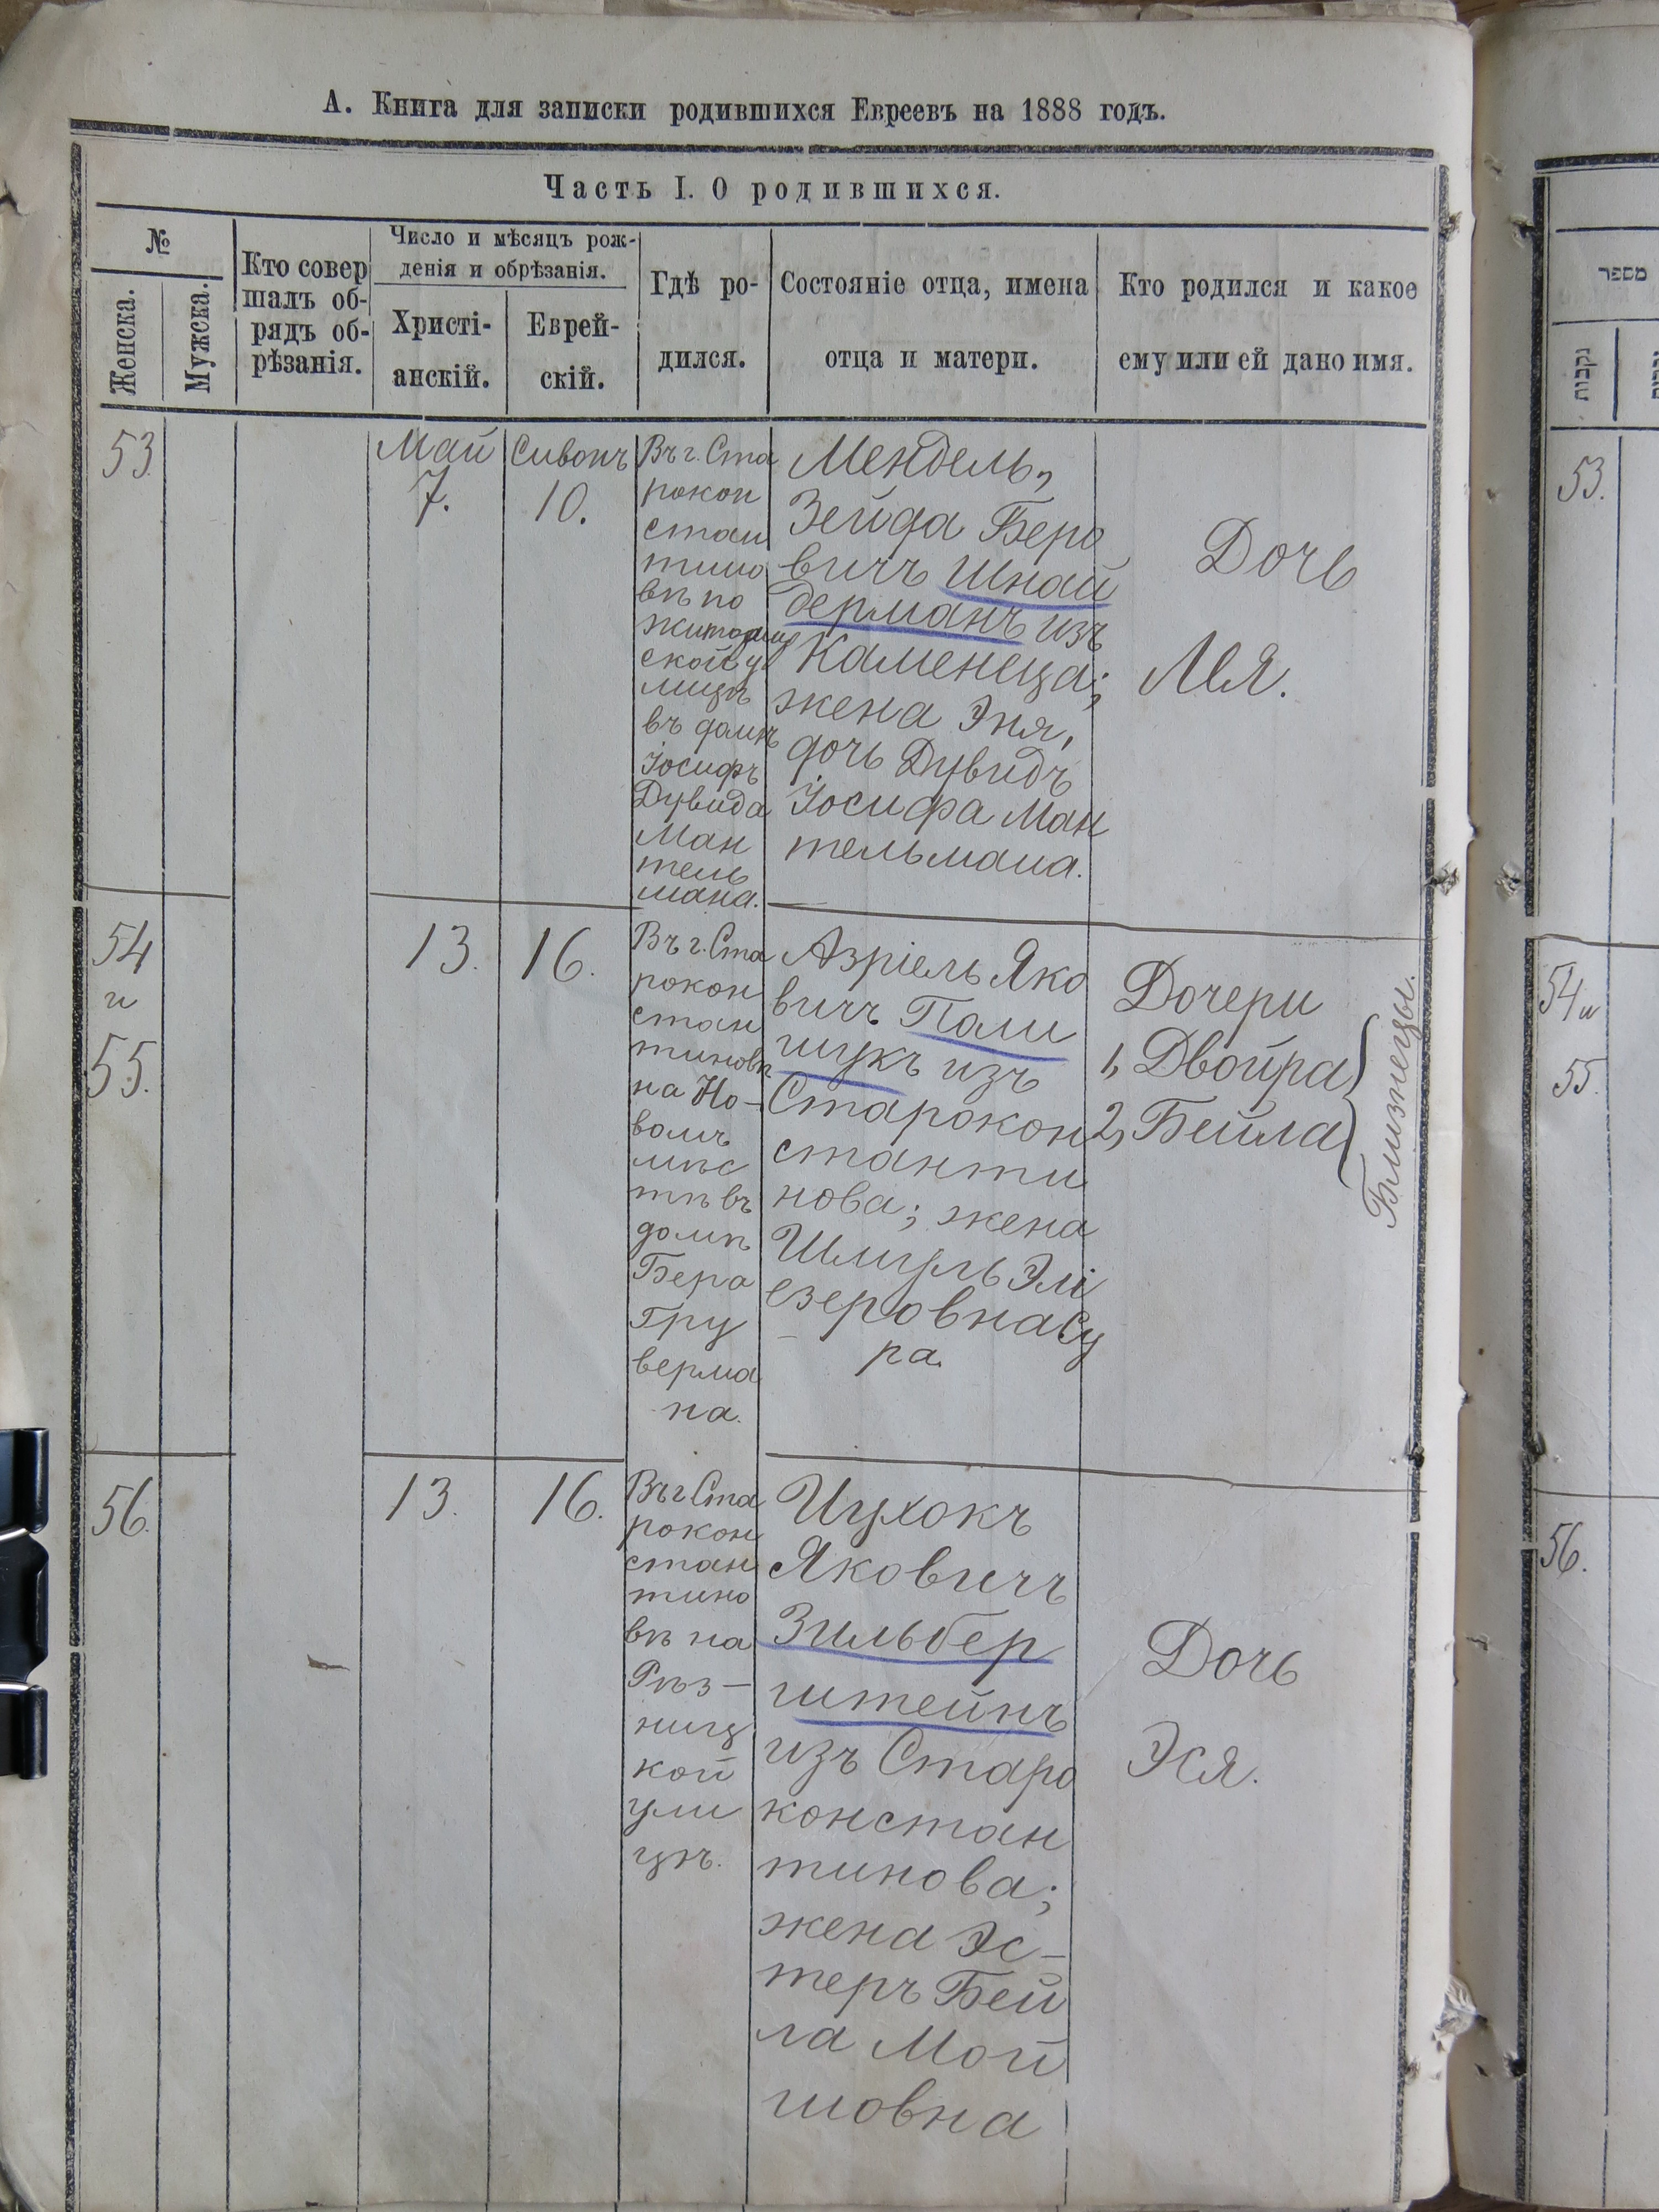 А. Книга для записки родившихся Евреевъ на 1888 годъ.
Часть I. О родившихся.
№
Женска.
Мужска.
Кто совер
шалъ об-
рядъ об-
рѣзанія.
Число и мѣсяцъ рож-
денія и обрѣзанія.
Христі-
анскій.
Еврей-
скій.
Гдѣ ро-
дился.
Состояніе отца, имена
отца и матери.
Кто родился и какое
ему или ей дано имя.
53.
Май
7.
Сивонъ
10.
Въ г. Ста
рокон
стан
тино
вѣ по
житомир
ской у
лицѣ
въ домѣ
Іосифъ
Дувида
Ман
тель
мана.
Мендель,
Зейда Беро
вичъ Шнай
дерманъ изъ
Каменеца;
жена Эня,
дочь Дувидъ
Іосифа Ман
тельмана.
Дочь
Лея.
54
и
55.
13.
16.
Въ г. Ста
рокон
стан
тиновѣ
на Но-
вомъ
мѣс
тѣ въ
домѣ
Бера
Гру
верма
на.
Азріель Яко
вичъ Поли
щукъ изъ
Старокон
станти
нова; жена
Шмуль Элі
езеровна Су
ра.
Дочери
1, Двойра
2, Бейла
Близнецы.
56.
13.
16.
Въ г Ста
рокон
стан
тино
вѣ на
Рѣз-
ниц
кой
ули
цѣ.
Ицхокъ
Яковичъ
Зильбер
штейнъ
изъ Старо
констан
тинова;
жена Эс-
теръ Бей
ла Мой
шовна
Дочь
Эся.
מספר
נקבות
53.
54 и
55.
56.